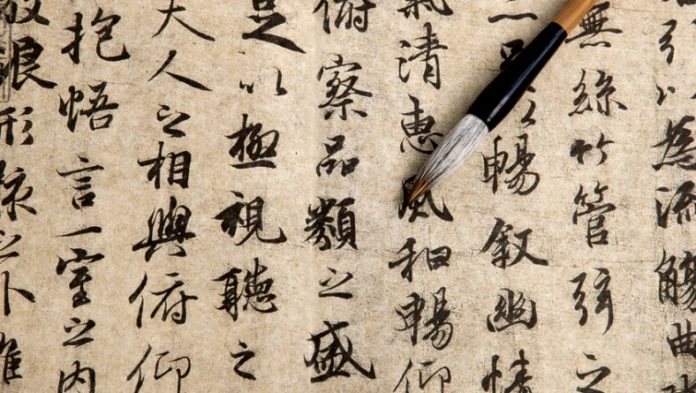 引以為流觴曲
無絲竹管弦之
暢叙幽情
氣清惠風和暢仰
俯察品類之盛
足以極視聽之
夫人之相與俯仰
抱悟言一室之内
放浪形骸之外雖